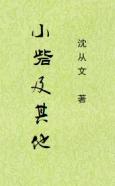 沈从文 著
小砦及其他